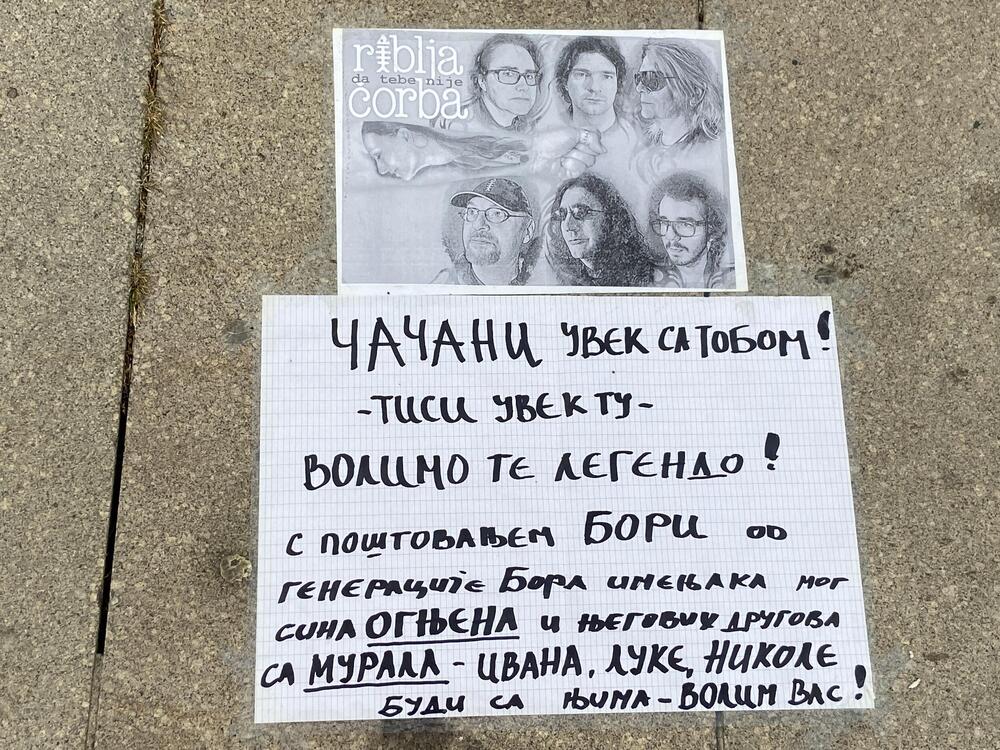 riblja
da tebe nije
čorba
ЧАЧАНИ УВЕК СА ТОБОМ!
-ТИ СИ УВЕК ТУ-
ВОЛИМО ТЕ ЛЕГЕНДО!
С ПОШТОВАЊЕМ БОРИ ОД
ГЕНЕРАЦИЈЕ БОРА ИМЕЊАКА МОГ
СИНА ОГЊЕНА И ЊЕГОВИХ ДРУГОВА
СА МУРАЛА - ИВАНА, ЛУКЕ, НИКОЛЕ
БУДИ СА ЊИМА - ВОЛИМ ВАС!